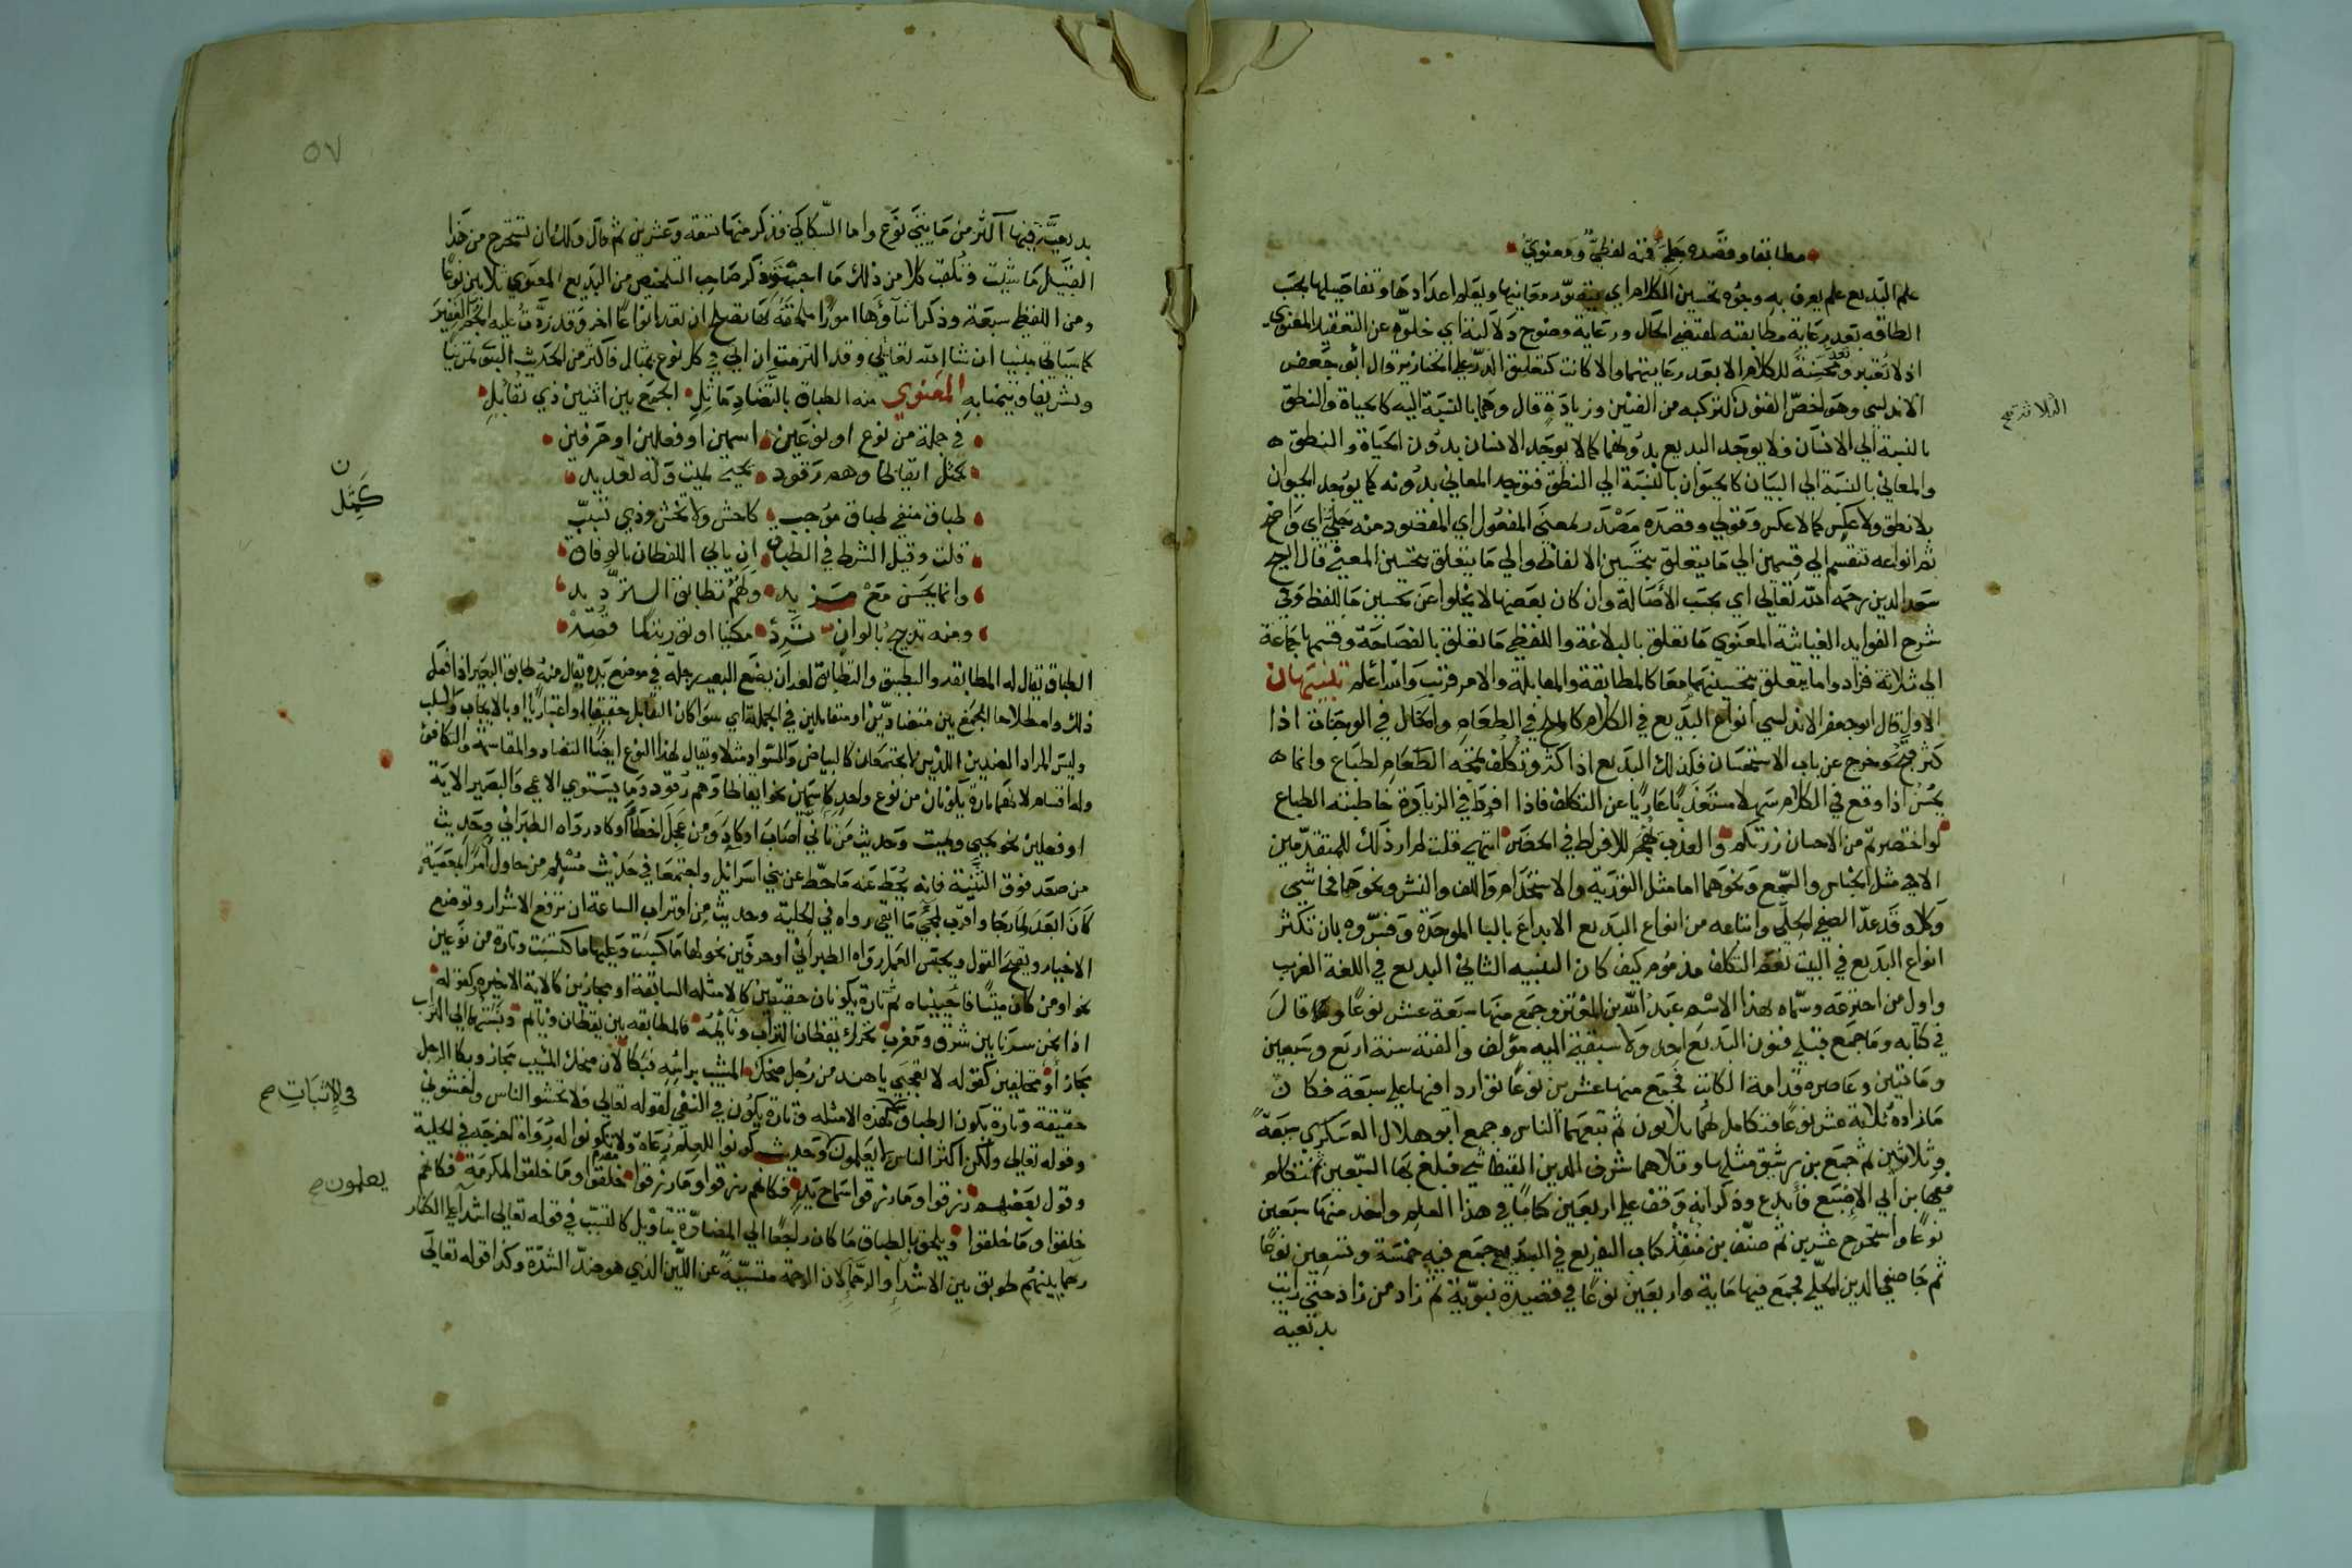 مطابقا وقصده جلي فمنه لفظي ومعنوي
علم البديع علم يعرف به وجوه تحسين الكلام اي يتصور معانيها ويعلم اعدادها وتفاصيلها بحسب
الطاقه بعد رعاية مطابقته لمقتضى الحال ورعاية وضوح دلالته اي خلوه عن التعقيد المعنوي
اذ لا تعتبر وتعد محسنة للكلام الا بعد رعايتهما والا كانت كتعليق الدر على الخنازير قال ابو جعفر
الاندلسي وهو اخص الفنون لتركبه من الفنين وزيادة قال وهما بالنسبة اليه كالحياة والنطق
الثلاثة صح
بالنسبة الي الانسان فلا يوجد البديع بدونهما كما لا يوجد الانسان بدون الحياة والنطق
والمعاني بالنسبة الي البيان كالحيوان بالنسبة الي النطق فتوجد المعاني بدونه كما يوجد الحيوان
بلا نطق ولا عكس كما لا عكس وقولي وقصده مصدر بمعنى المفعول اي المقصود منه جلي اي واضح
ثم انواعه تنقسم الي قسمين الي ما يتعلق بتحسين الالفاظ والي ما يتعلق بتحسين المعنى قال الشيخ
سعد الدين رحمه الله تعالى اي بحسب الأصالة وان كان بعضها لا يخلو عن تحسين ما للفظ وفي
شرح الفوايد الغياثية المعنوي ما تعلق بالبلاغة واللفظي ما تعلق بالفصاحة وقسمها جماعة
الي ثلاثة فزادوا ما يتعلق بتحسينهما معا كالمطابقة والمقابلة والامر قريب والله اعلم تنبيهان
الاول قال ابو جعفر الاندلسي انواع البديع في الكلام كالملح في الطعام والخال في الوجنات اذا
كثر سمج وخرج عن باب الاستحسان فكذلك البديع اذا كثر وتكلف مجته الطباع وانما
يحسن اذا وقع في الكلام سهلا مستعذبا عاريا عن التكلف فاذا افرط في الزيادة خاطبته الطباع
لو اختصرتم من الاحسان زرتكم والعذب يهجر للافراط في الخصر انتهى قلت المراد ذلك للمتقدمين
الا في مثل الجناس والسجع ونحوهما اما مثل التورية والاستخدام واللف والنشر ونحوها فحاشى
وكلا وقد عد الصفي الحلي واتباعه من انواع البديع الابداع بالبا الموحدة وفسروه بان تكثر
انواع البديع في البيت نعم التكلف مذموم كيف كان التنبيه الثاني البديع في اللغة الغريب
واول من اخترعه وسماه بهذا الاسم عبد الله بن المعتز وجمع منها سبعة عشر نوعا وقال
في كتابه وما جمع قبلي فنون البديع احد ولا سبقني اليه مؤلف والفته سنة اربع وسبعين
ومائتين وعاصره قدامة الكاتب فجمع منها عشرين نوعا تواردا فيها على سبعة فكان
ما زاده ثلاثة عشر نوعا فتكامل لهما ثلاثون ثم تبعهما الناس وجمع ابو هلال العسكري سبعة
وثلاثين ثم جمع بن رشيق مثلها وتلاهما شرف الدين التيفاشي فبلغ بها السبعين ثم تكلم
فيها بن ابي الاصبع فأبدع وذكر انه وقف على اربعين كتابا في هذا العلم واخذ منها سبعين
نوعا واستخرج عشرين ثم صنف بن منقذ كتاب التفريع في البديع جمع فيه خمسة وتسعين نوعا
ثم جا صفي الدين الحلي فجمع فيها ماية واربعين نوعا في قصيدة نبوية ثم زاد من زاد حتى رايت
بديعية
٥٧
بديعية فيها اكثر من مايتي نوع واما السكاكي فذكر منها تسعة وعشرين ثم قال ولك ان تستخرج من هذا
القبيل ما شئت وتلقب كلا من ذلك ما احببت وذكر صاحب التلخيص من البديع المعنوي ثلاثين نوعا
ومن اللفظي سبعة وذكر اثناؤها امورا ملحقة بها تصلح ان تعد انواعا اخر وقد زدت عليه الجم الغفير
كما سياتي مبينا ان شا الله تعالى وقد التزمت ان اتي في كل نوع بمثال فأكثر من الحديث النبوي تمرينا
وتشريفا وتيمنا به المعنوي منه الطباق بالتضاد ماثل الجمع بين اثنين ذي تقابل
في جملة من نوع او نوعين اسمين او فعلين او حرفين
كمثل ايقاظا وهم رقود يحيي يميت وله تعديد
ن كمثل
طباق منفي طباق موجب كاخش ولا تخش وذي تسبب
قلت وقيل الشرط في الطباق ان ياتي اللفظان بالوفاق
وانما يحسن مع مزيد ولهم تطابق الترديد
ومنه تدبيج بالوان ترد مكنيا او توريتها قصد
الطباق يقال له المطابقة والتطبيق والتطابق لغة ان يضع البعير رجله في موضع يده يقال منه طابق البعير اذا فعل
ذلك واصطلاحا الجمع بين متضادين او متقابلين في الجملة اي سوا كان التقابل حقيقيا او اعتباريا او بالايجاب والسلب
وليس المراد الضدين اللذين لا يجتمعان كالبياض والسواد مثلا ويقال لهذا النوع ايضا التضاد والمقاسمة والتكافؤ
وله اقسام لانهما تارة يكونان من نوع واحد كاسمين نحو ايقاظا وهم رقود وما يستوي الاعمى والبصير الاية
او فعلين نحو يحيي ويميت وحديث من تأنى أصاب او كاد ومن عجل اخطأ او كاد رواه الطبراني وحديث
من صعد فوق الثنية فانه يحط عنه ما حط عن بني اسرائيل واجتمعا في حديث مسلم من حاول امرا بمعصية
كان ابعد لما رجا واقرب لمجي ما اتقى رواه في الحلية وحديث من اقتراب الساعة ان ترفع الاشرار وتوضع
الاخيار ويفتح القول ويحبس العمل رواه الطبراني او حرفين نحو لها ما كسبت وعليها ما اكتسبت وتارة من نوعين
نحو او من كان ميتا فاحييناه ثم تارة يكونان حقيقتين كالامثله السابقة او مجازين كالاية الاخيره وكقوله
اذا نحن سرنا بين شرق ومغرب تحرك يقظان التراب ونائمه فالمطابقه بين يقظان ونايم ونسبتهما الي التراب
مجاز او مختلفين كقوله لا تعجبي يا هند من رجل ضحك المشيب براسه فبكا لان ضحك المشيب مجاز وبكا الرجل
حقيقة وتارة يكون الطباق كهذه الامثله وتارة يكون في النفي كقوله تعالى فلا تخشوا الناس واخشوني
في الاثبات صح
وقوله تعالى ولكن اكثر الناس لا يعلمون وحديث كونوا للعلم رعاة ولا تكونوا له رواة اخرجه في الحلية
يعلمون صح
وقول بعضهم رزقوا وما رزقوا سماح يد فكانهم رزقوا وما رزقوا خلقوا وما خلقوا لمكرمة فكانهم
خلقوا وما خلقوا ويلحق بالطباق ما كان راجعا الي المضادة بتاويل كالتسبب في قوله تعالى اشداء على الكفار
رحما بينهم طوبق بين الاشدا والرحما لان الرحمة متسببة عن اللين الذي هو ضد الشدة وكذا قوله تعالى